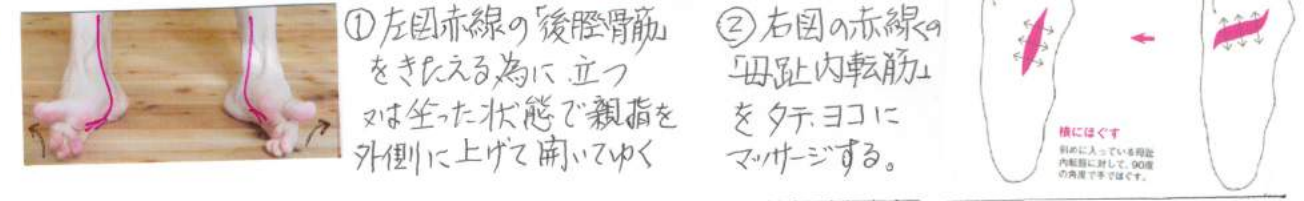 ①左図赤線の「後脛骨筋」
をきたえる為に立つ
又は坐った状態で親指を
外側に上げて開いてゆく
②右図の赤線の
「母趾内転筋」
をタテ、ヨコに
マッサージする。
横にほぐす
斜めに入っている母趾
内転筋に対して、90度
の角度で手でほぐす。